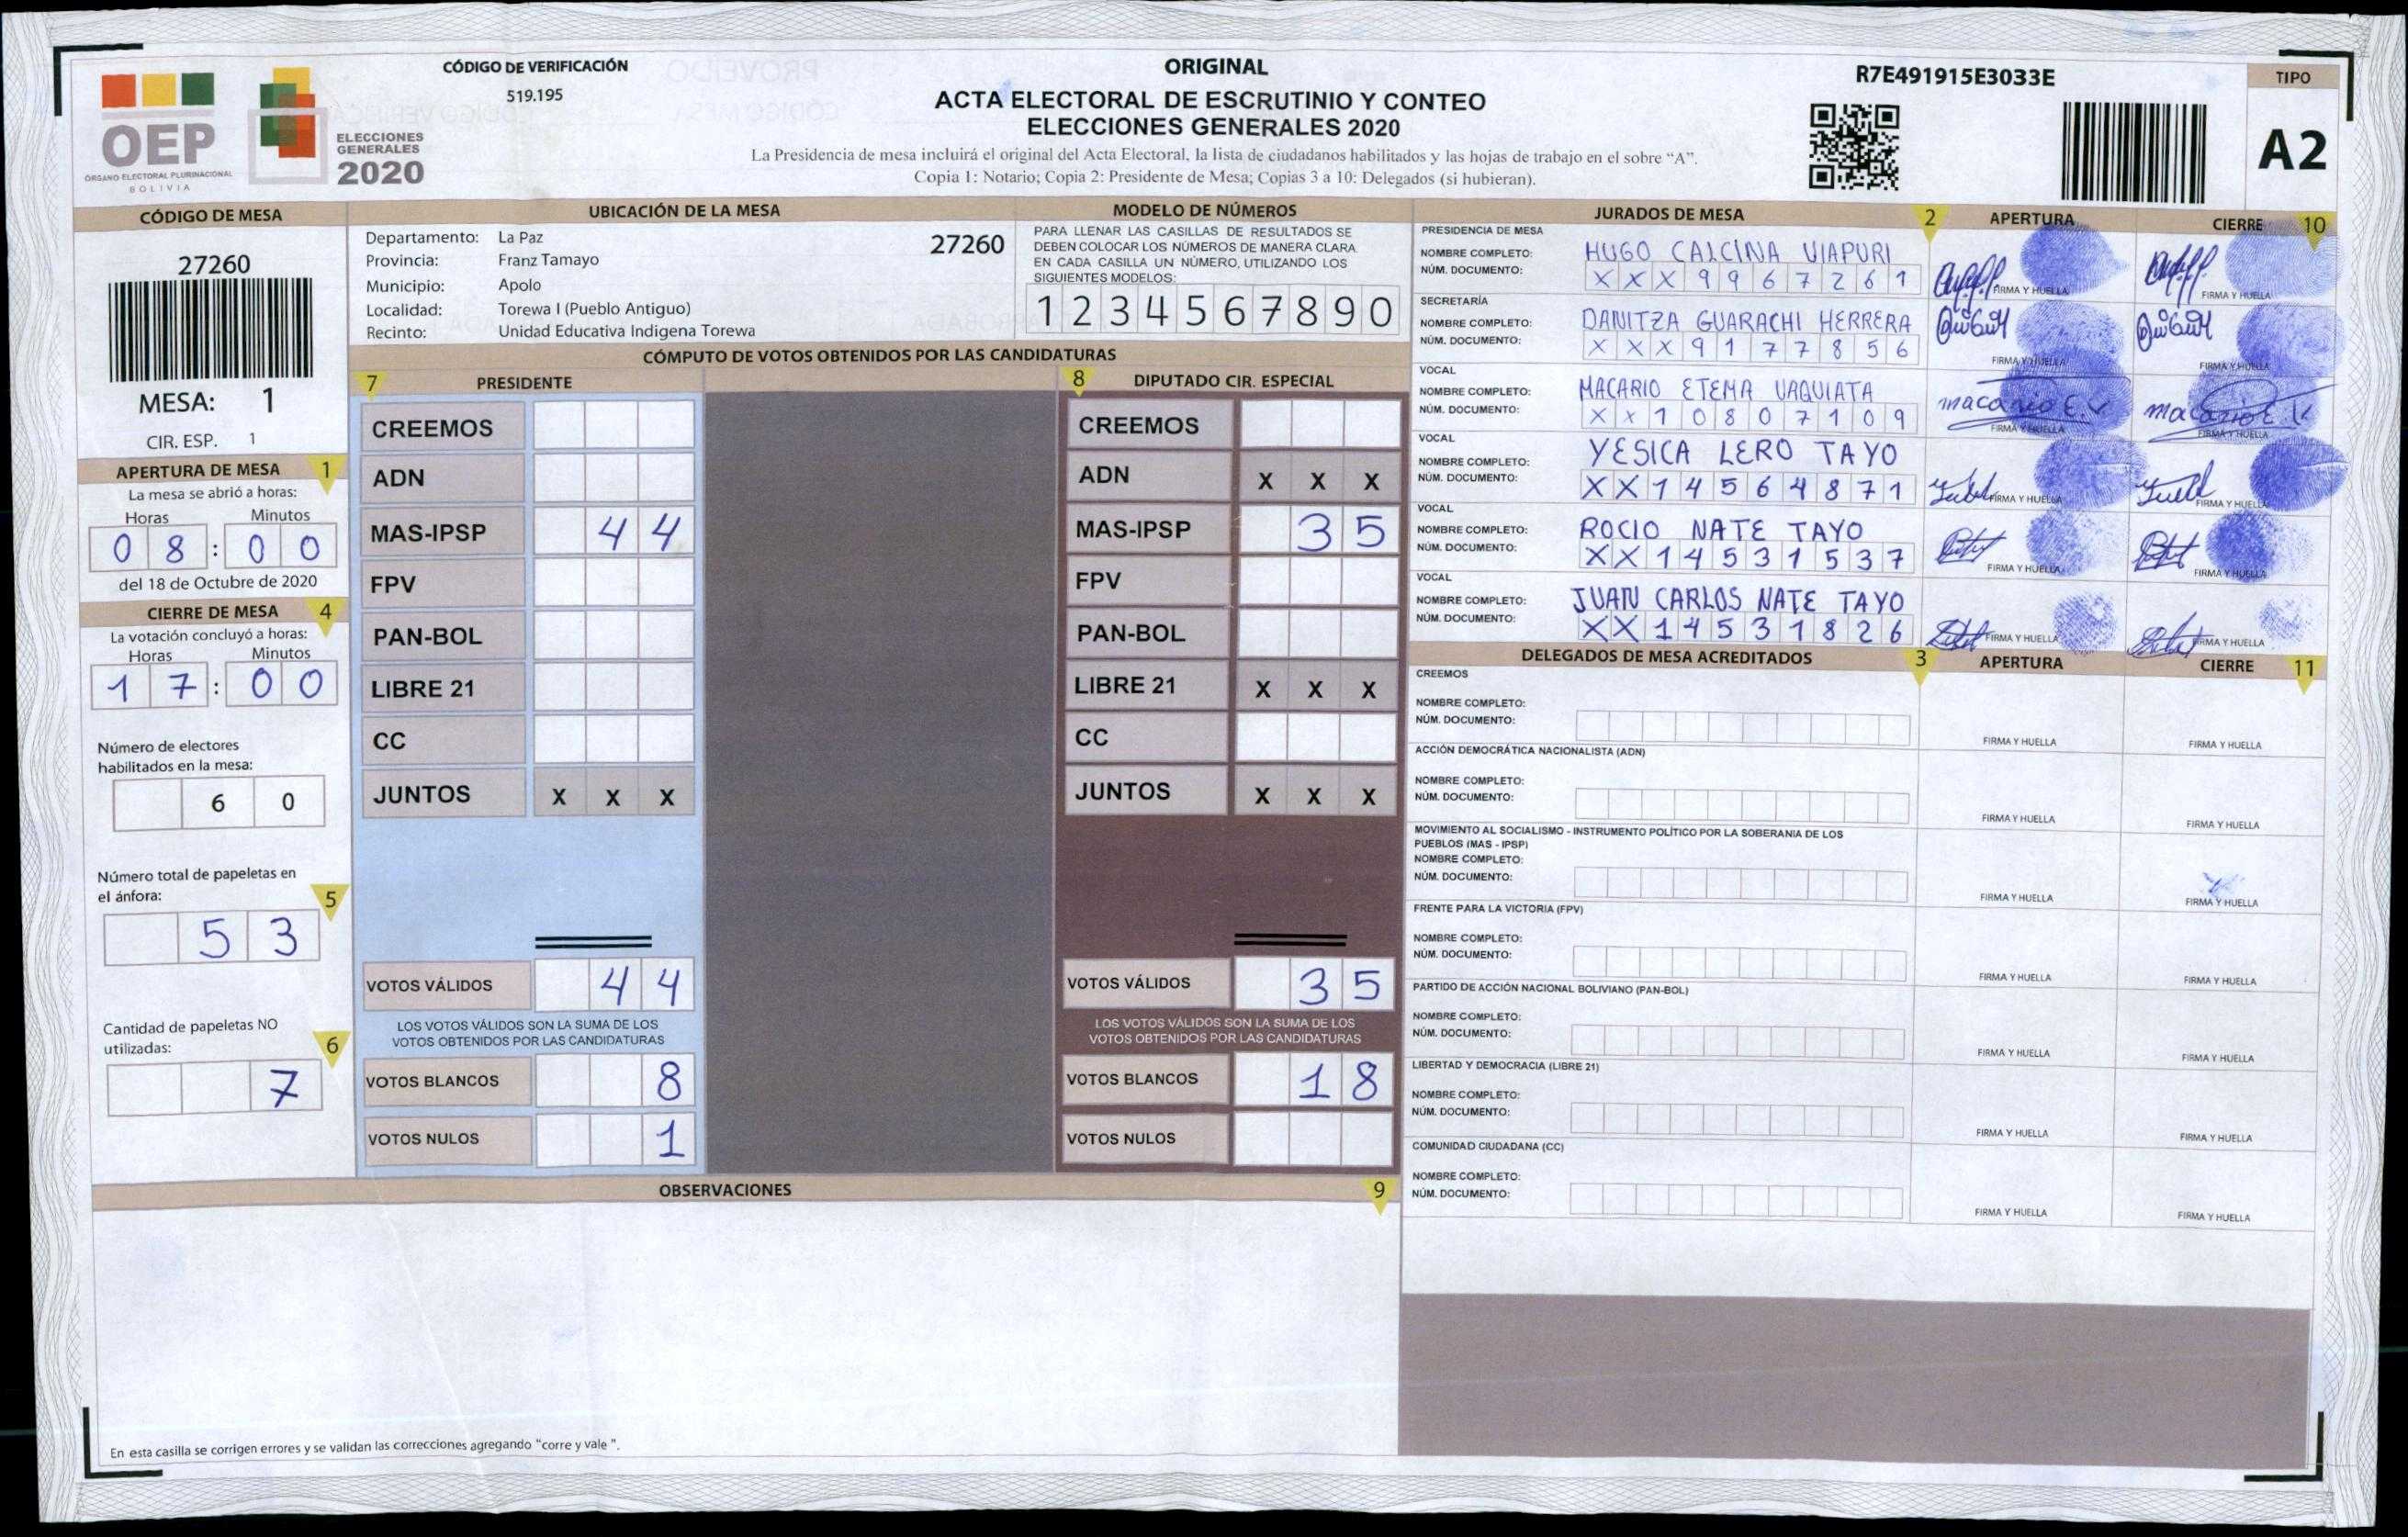 OEP
ÓRGANO ELECTORAL PLURINACIONAL
BOLIVIA
ELECCIONES
GENERALES
2020
CÓDIGO DE VERIFICACIÓN
519.195
ORIGINAL
ACTA ELECTORAL DE ESCRUTINIO Y CONTEO
ELECCIONES GENERALES 2020
La Presidencia de mesa incluirá el original del Acta Electoral, la lista de ciudadanos habilitados y las hojas de trabajo en el sobre “A”.
Copia 1: Notario; Copia 2: Presidente de Mesa; Copias 3 a 10: Delegados (si hubieran).
R7E491915E3033E
TIPO
A2
CÓDIGO DE MESA
27260
MESA: 1
CIR. ESP. 1
APERTURA DE MESA 1
La mesa se abrió a horas:
Horas Minutos
0 8 : 0 0
del 18 de Octubre de 2020
CIERRE DE MESA 4
La votación concluyó a horas:
Horas Minutos
1 7 : 0 0
Número de electores
habilitados en la mesa:
6 0
Número total de papeletas en
el ánfora: 5
5 3
Cantidad de papeletas NO
utilizadas: 6
7
UBICACIÓN DE LA MESA
Departamento: La Paz 27260
Provincia: Franz Tamayo
Municipio: Apolo
Localidad: Torewa I (Pueblo Antiguo)
Recinto: Unidad Educativa Indigena Torewa
MODELO DE NÚMEROS
PARA LLENAR LAS CASILLAS DE RESULTADOS SE
DEBEN COLOCAR LOS NÚMEROS DE MANERA CLARA
EN CADA CASILLA UN NÚMERO, UTILIZANDO LOS
SIGUIENTES MODELOS:
1 2 3 4 5 6 7 8 9 0
CÓMPUTO DE VOTOS OBTENIDOS POR LAS CANDIDATURAS
7 PRESIDENTE
CREEMOS
ADN
MAS-IPSP 4 4
FPV
PAN-BOL
LIBRE 21
CC
JUNTOS X X X
VOTOS VÁLIDOS 4 4
LOS VOTOS VÁLIDOS SON LA SUMA DE LOS
VOTOS OBTENIDOS POR LAS CANDIDATURAS
VOTOS BLANCOS 8
VOTOS NULOS 1
8 DIPUTADO CIR. ESPECIAL
CREEMOS
ADN X X X
MAS-IPSP 3 5
FPV
PAN-BOL
LIBRE 21 X X X
CC
JUNTOS X X X
VOTOS VÁLIDOS 3 5
LOS VOTOS VÁLIDOS SON LA SUMA DE LOS
VOTOS OBTENIDOS POR LAS CANDIDATURAS
VOTOS BLANCOS 1 8
VOTOS NULOS
OBSERVACIONES 9
En esta casilla se corrigen errores y se validan las correcciones agregando "corre y vale ".
JURADOS DE MESA 2 APERTURA CIERRE 10
PRESIDENCIA DE MESA
NOMBRE COMPLETO: HUGO CALCINA VIAPURI
NÚM. DOCUMENTO: X X X 9 9 6 7 2 6 1
FIRMA Y HUELLA FIRMA Y HUELLA
SECRETARÍA
NOMBRE COMPLETO: DANITZA GUARACHI HERRERA
NÚM. DOCUMENTO: X X X 9 1 7 7 8 5 6
FIRMA Y HUELLA FIRMA Y HUELLA
VOCAL
NOMBRE COMPLETO: MACARIO ETEMA VAQUIATA
NÚM. DOCUMENTO: X X 1 0 8 0 7 1 0 9
macario E.V macario E. V
FIRMA Y HUELLA FIRMA Y HUELLA
VOCAL
NOMBRE COMPLETO: YESICA LERO TAYO
NÚM. DOCUMENTO: X X 1 4 5 6 4 8 7 1
FIRMA Y HUELLA FIRMA Y HUELLA
VOCAL
NOMBRE COMPLETO: ROCIO NATE TAYO
NÚM. DOCUMENTO: X X 1 4 5 3 1 5 3 7
FIRMA Y HUELLA FIRMA Y HUELLA
VOCAL
NOMBRE COMPLETO: JUAN CARLOS NATE TAYO
NÚM. DOCUMENTO: X X 1 4 5 3 1 8 2 6
FIRMA Y HUELLA FIRMA Y HUELLA
DELEGADOS DE MESA ACREDITADOS 3 APERTURA CIERRE 11
CREEMOS
NOMBRE COMPLETO:
NÚM. DOCUMENTO:
FIRMA Y HUELLA FIRMA Y HUELLA
ACCIÓN DEMOCRÁTICA NACIONALISTA (ADN)
NOMBRE COMPLETO:
NÚM. DOCUMENTO:
FIRMA Y HUELLA FIRMA Y HUELLA
MOVIMIENTO AL SOCIALISMO - INSTRUMENTO POLÍTICO POR LA SOBERANIA DE LOS
PUEBLOS (MAS - IPSP)
NOMBRE COMPLETO:
NÚM. DOCUMENTO:
FIRMA Y HUELLA FIRMA Y HUELLA
FRENTE PARA LA VICTORIA (FPV)
NOMBRE COMPLETO:
NÚM. DOCUMENTO:
FIRMA Y HUELLA FIRMA Y HUELLA
PARTIDO DE ACCIÓN NACIONAL BOLIVIANO (PAN-BOL)
NOMBRE COMPLETO:
NÚM. DOCUMENTO:
FIRMA Y HUELLA FIRMA Y HUELLA
LIBERTAD Y DEMOCRACIA (LIBRE 21)
NOMBRE COMPLETO:
NÚM. DOCUMENTO:
FIRMA Y HUELLA FIRMA Y HUELLA
COMUNIDAD CIUDADANA (CC)
NOMBRE COMPLETO:
NÚM. DOCUMENTO:
FIRMA Y HUELLA FIRMA Y HUELLA